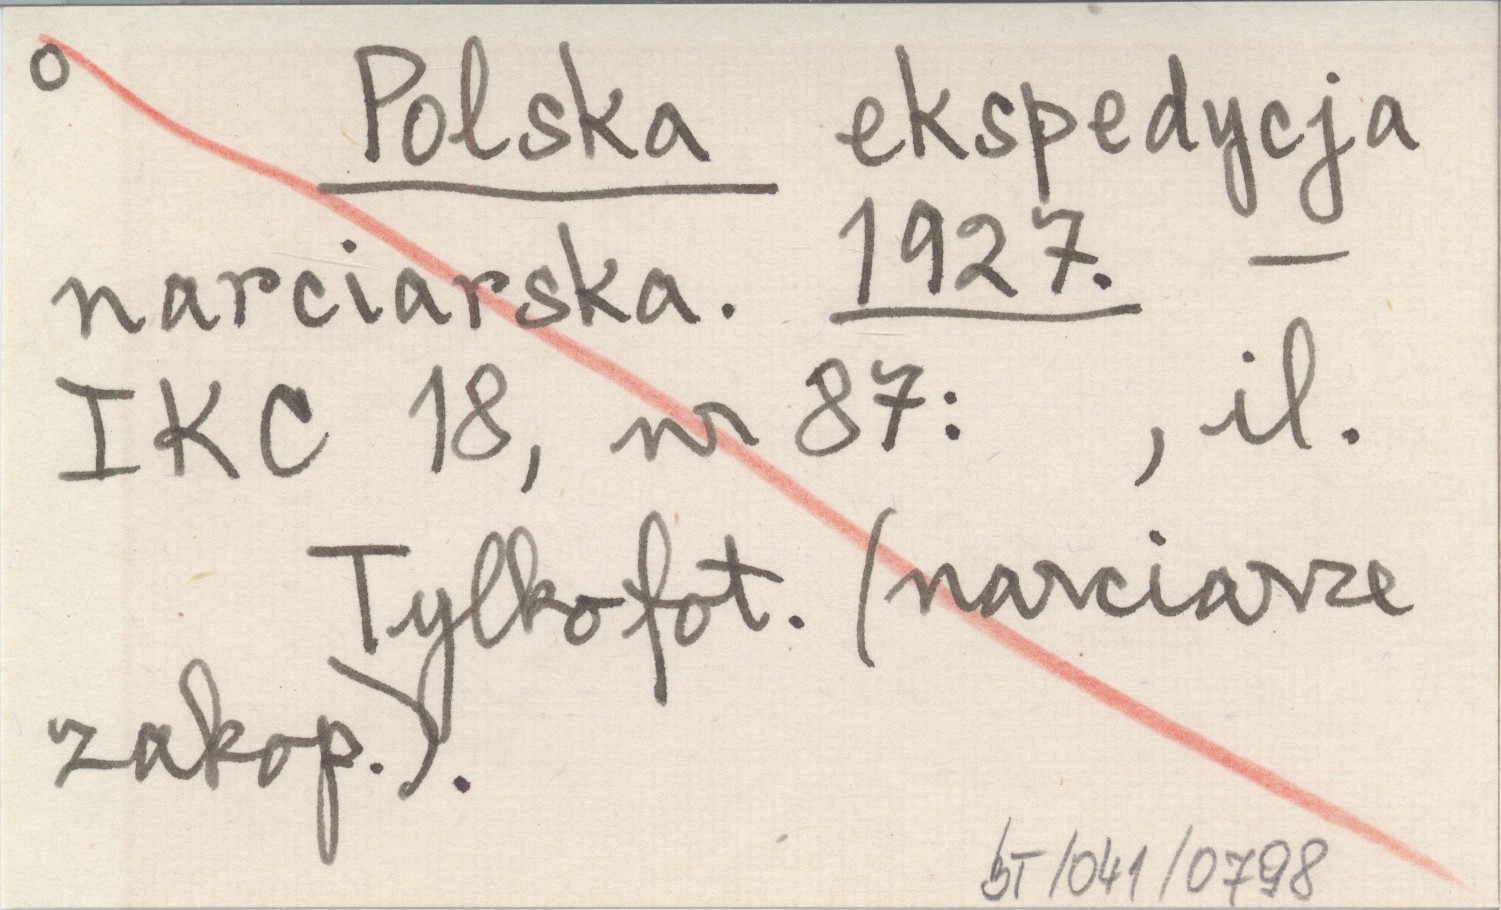 o Polska ekspedycja
narciarska. 1927. —
IKC 18, nr 87: , il.
Tylko fot. (narciarze
zakop.).
BT/041/0798